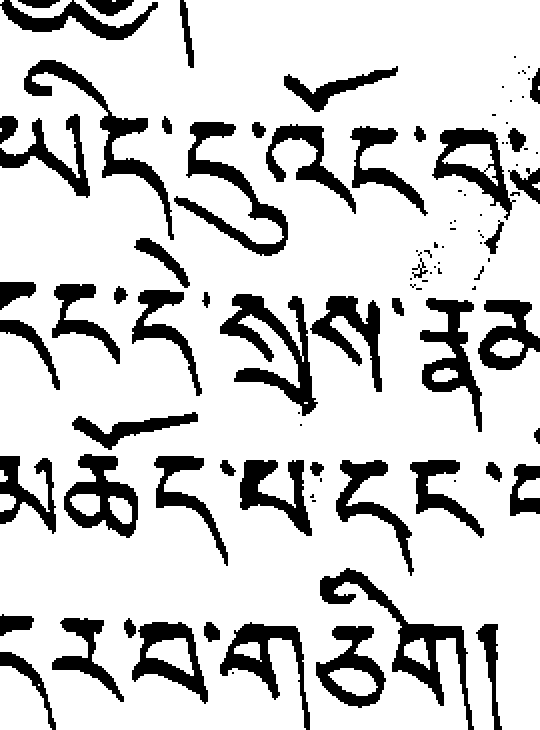 ཡིད་དུ་འོང་བ་
དང་དེ་སྲས་རྣམ
མཆོད་པ་དང་
དང་བ་གཅིག།